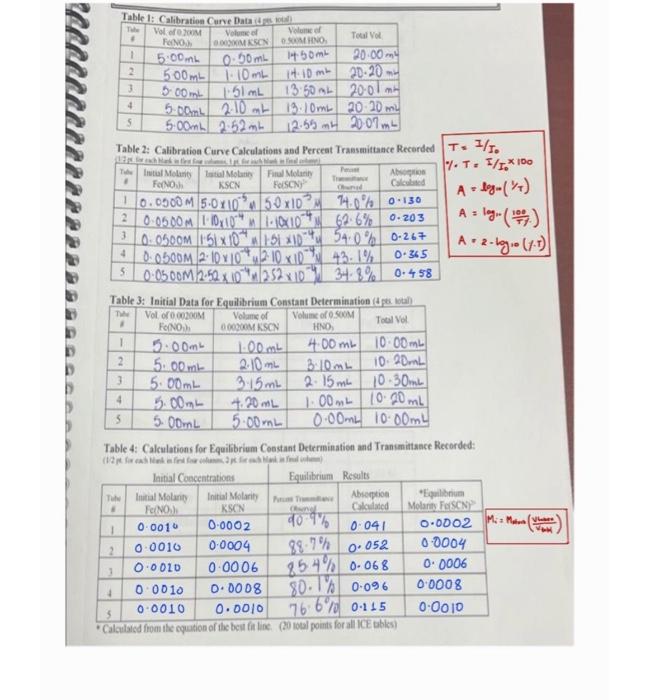 Table 1: Calibration Curve Data (4 pts. total)
Tube # Vol. of 0.200M Fe(NO₃)₃ Volume of 0.00200M KSCN Volume of 0.500M HNO₃ Total Vol.
1 5.00mL 0.50mL 14.50mL 20.00mL
2 5.00mL 1.10mL 14.10mL 20.20mL
3 5.00mL 1.51mL 13.50mL 20.01mL
4 5.00mL 2.10mL 13.10mL 20.20mL
5 5.00mL 2.52mL 12.55mL 20.07mL
Table 2: Calibration Curve Calculations and Percent Transmittance Recorded
(1/2 pt. for each blank in first four columns, 1 pt. for each blank in final column)
Tube # Initial Molarity Fe(NO₃)₃ Initial Molarity KSCN Final Molarity Fe(SCN)²⁺ Percent Transmittance Observed Absorption Calculated
1 0.0500M 5.0x10⁻⁵M 5.0x10⁻⁵M 74.0% 0.130
2 0.0500M 1.10x10⁻⁴M 1.10x10⁻⁴M 62.6% 0.203
3 0.0500M 1.51x10⁻⁴M 1.51x10⁻⁴M 54.0% 0.267
4 0.0500M 2.10x10⁻⁴M 2.10x10⁻⁴M 43.1% 0.365
5 0.0500M 2.52x10⁻⁴M 2.52x10⁻⁴M 34.8% 0.458
T = I/I₀
%.T = I/I₀ × 100
A = log₁₀(1/T)
A = log₁₀(100/%T)
A = 2 - log₁₀(%.T)
Table 3: Initial Data for Equilibrium Constant Determination (4 pts. total)
Tube # Vol. of 0.00200M Fe(NO₃)₃ Volume of 0.00200M KSCN Volume of 0.500M HNO₃ Total Vol.
1 5.00mL 1.00mL 4.00mL 10.00mL
2 5.00mL 2.10mL 3.10mL 10.20mL
3 5.00mL 3.15mL 2.15mL 10.30mL
4 5.00mL 4.20mL 1.00mL 10.20mL
5 5.00mL 5.00mL 0.00mL 10.00mL
Table 4: Calculations for Equilibrium Constant Determination and Transmittance Recorded:
(1/2 pt. for each blank in first four columns, 2 pt. for each blank in final column)
Initial Concentrations Equilibrium Results
Tube # Initial Molarity Fe(NO₃)₃ Initial Molarity KSCN Percent Transmittance Observed Absorption Calculated *Equilibrium Molarity Fe(SCN)²⁺
1 0.0010 0.0002 90.9% 0.041 0.0002
2 0.0010 0.0004 88.7% 0.052 0.0004
3 0.0010 0.0006 85.4% 0.068 0.0006
4 0.0010 0.0008 80.1% 0.096 0.0008
5 0.0010 0.0010 76.6% 0.115 0.0010
* Calculated from the equation of the best fit line. (20 total points for all ICE tables)